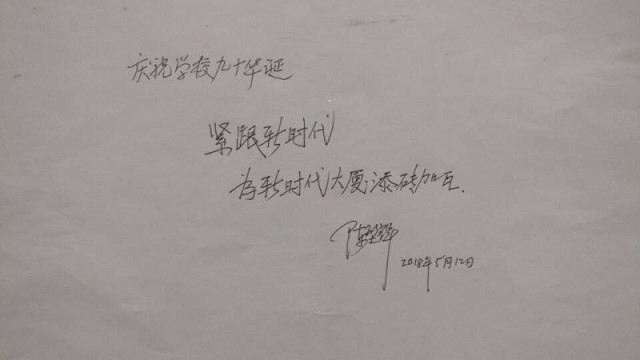 庆祝学校九十华诞
紧跟新时代
为新时代大厦添砖加瓦.
陈
2018年5月12日